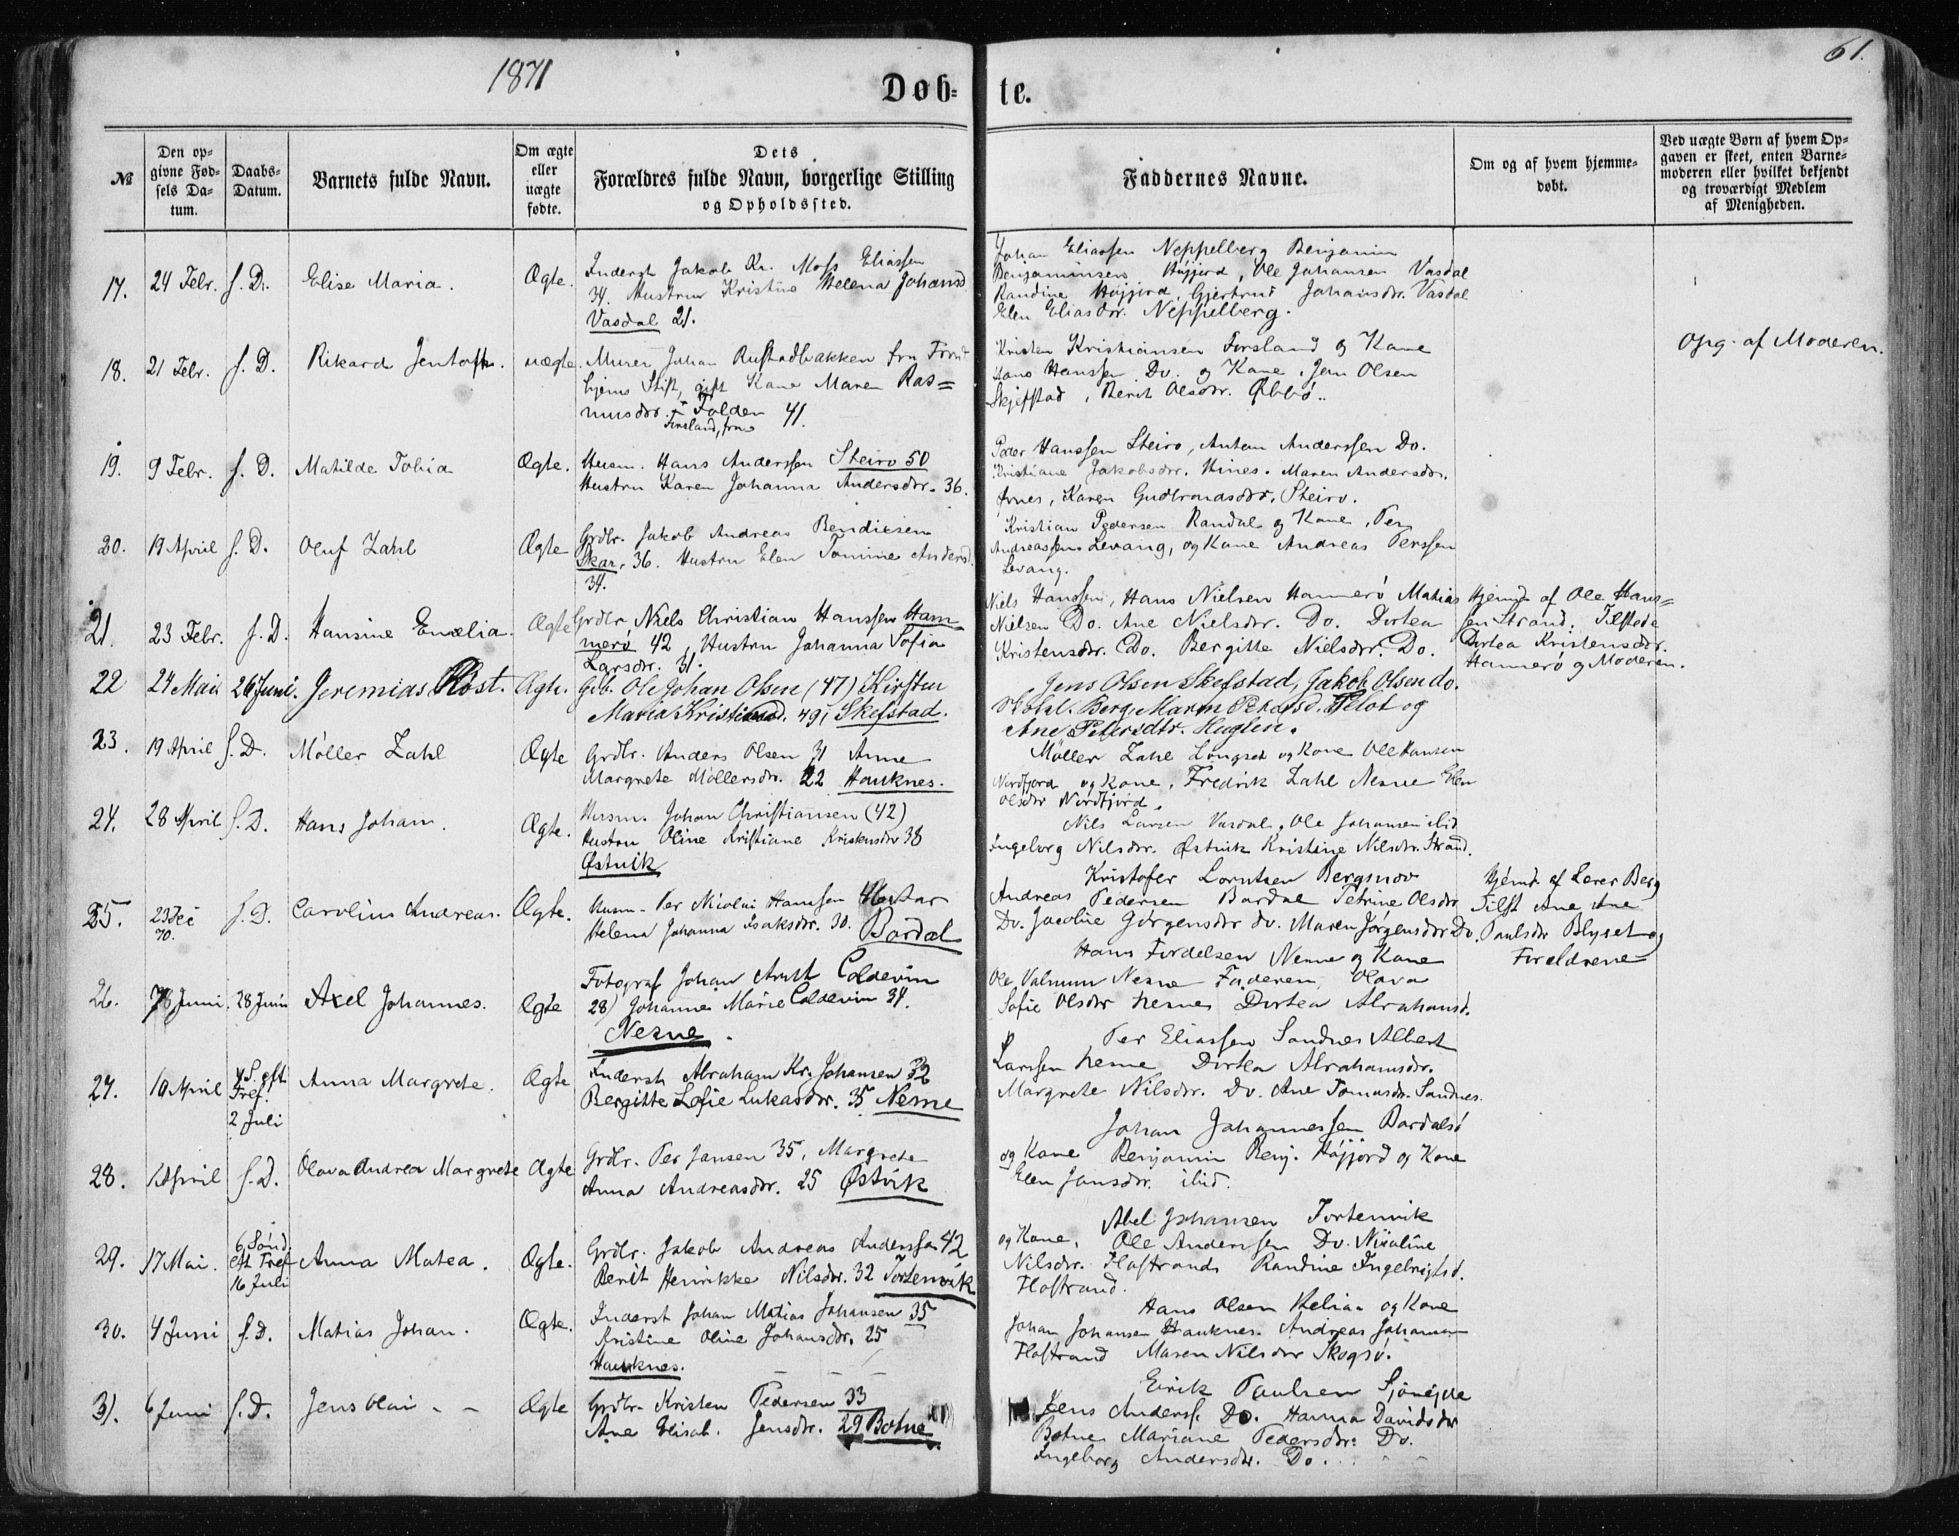 1871
61.
Døb-
te.
№
Den op-
givne Fød-
sels Da-
tum.
Daabs-
Datum.
Barnets fulde Navn.
Om ægte
eller
uægte
fødte.
Dets
Forældres fulde Navn, borgerlige Stilling
og Opholdssted.
Faddernes Navne.
Om og af hvem hjemme-
døbt.
Ved uægte Børn af hvem Op-
gaven er skeet, enten Barne-
moderen eller hvilket bekjendt
og troværdigt Medlem
af Menigheden.
17. 24 Febr. f. D. Elise Maria. Ægte.
Inderst Jakob Kr. Moss Eliassen
34. Hustru Kristine Helena Johansd
Vasdal 21.
Johan Eliassen Neppelberg Benjamin
Benjaminsen Høgjord, Ole Johansen Vasdal
Randine Høgjord, Gjertrud Johansdr. Vasdal
Elen Eliasdr. Neppelberg.
18. 21 Febr. f. D. Rikard Jentoft. uægte.
Murer Johan Rustadbakken fra Trond
hjems Stift, gift Kone Maren Ras=
musdtr. i Folden 41.
Forsland, fra
Kristen Kristiansen Forsland og Kone
Hans Hanssen Do. og Kone, Jens Olsen
Skjefstad, Berit Olsdtr. Øbbø.
Opg. af Moderen.
19. 9 Febr. f. D. Matilde Tobia Ægte.
Husm. Hans Anderssen Steiro 50
Hustru Karen Johanna Andersdtr. 36.
Peder Hanssen Steiro, Anton Anderssen Do.
Kristiane Jakobsdr. Hines. Maren Andersdtr.
Ørnes, Karen Gudbrandsdtr, Steiro.
20. 19 April f. D. Oluf Zahl Ægte
Grdbr. Jakob Andreas Bendixsen
Skar, 36. Hustru Elen Tomine Andersd.
34.
Kristian Pedersen Randal og Kone, Per
Andreassen Levang, og Kone Andreas Perssen
Levang.
21. 23 Febr. f. D. Hansine Emelia. Ægte
Grdbr Niels Christian Hanssen Ham-
merø 42 Hustru Johanna Sofia
Larsdr. 31.
Niels Hanssen, Hans Nielsen Hamnerø Matias
Nielsen Do. Ane Nielsdr. Do. Dortea
Kristensdr. Do. Bergitte Nielsdr. Do.
Hjemd. af Ole Hans=
sen Strand. Tilstede
Dortea Kristensdtr.
Hamnerø og Moderen.
22 24 Mai 26 Juni. Jeremias Rost. Ægte.
Gdb. Ole Johan Olsen (47) Kirsten
Maria Kristiansd. 49, Skefstad.
Jens Olsen Skefstad, Jakob Olsen do.
Berg, Maren
Ane Petersdtr. Huglen.
23. 19 April f. D. Møller Zahl Ægte
Grdbr. Anders Olsen 31 Anne
Margrete Møllersdr. 22 Hauknes.
Møller Zahl Longset og Kone Ole Hansen
Nordfjord og Kone, Fredrik Zahl Nesne Elen
Olsdtr Nordfjord.
24. 28 April f. D. Hans Johan. Ægte.
Husm. Johan Christiansen (42)
Hustru Oline Kristiane Kristensdtr 38
Østvik
Nils Larsen Vasdal, Ole Johansen ibid
Ingeborg Nilsdtr. Østvik Kristine Nilsdtr. Strand.
25. 23 Dec 70. f. D. Carolius Andreas. Ægte.
Husm. Per Nicolai Hanssen 46
Helena Johanna Isaksdtr. 30. Bardal
Kristofer Lorntsen Bergsnov
Andreas Pedersen Bardal Petrine Olsdtr
Do. Jacobine Jørgensdtr do. Maren Jørgensdtr Do.
Hjemd. af Lærer Berg
Tilst Ane Ane
Paulsdtr Blyset og
Forældrene
26. 8 Juni. 28 Juni Axel Johannes. Ægte
Fotograf Johan Arnt Coldevin
28) Johanne Marie Coldevin 34.
Nesne.
Hans Fordelsen Nesne og Kone
Ole Valmum Nesne Faderen, Olava
Sofie Olsdtr Nesne Dortea Abrahamsd.
27. 19 April 4 S. eft
Tref.
2 Juli Anna Margrete. Ægte
Inderst Abraham Kr. Johansen 32
Bergitte Sofie Lukasdtr. 35 Nesne
Per Eliassen Sandnes Albert
Larssen Nesne Dortea Abrahamsdtr.
Margrete Nilsdtr. Do. Ane Tomasdtr. Sandnes.
28. 1 April f. D. Olava Andrea Margrete Ægte
Grdbr. Per Jansen 35, Margrete
Anna Andreasdtr. 25 Østvik
Johan Johannessen Bardalsø
og Kone Benjamin Benj. Høgjord og Kone
Elen Jansdtr. ibid.
29. 17 Mai. 6 Sønd
eft Tref
16 Juli Anna Matea. Ægte.
Grdbr. Jakob Andreas Anderssen 42
Berit Henrikke Nilsdtr. 32 Tortenvik
Abel Johansen Tortenvik
og Kone, Ole Anderssen Do. Nikoline
Nilsdtr. Flostrand Randine Ingebrigtsd.
Flostrand.
30. 4 Juni f. D. Matias Johan. Ægte.
Inderst Johan Matias Johansen 35
Kristine Oline Johansdtr. 25
Hauknes.
Hans Olsen og Kone
Johan Johansen Hauknes. Andreas Johansen
Flostrand Maren Nilsdtr Skogsø.
31. 6 Juni f. D. Jens Olai - - Ægte
Grdbr. Kristen Pedersen 33
Ane Elisab. Jensdtr. 29 Botne
Eirik Paulsen Sjøneide
Jens Anderss. Do. Hanna Davidsdtr
Botne Mariane Pedersdtr: Do.
Ingeborg Andersdtr. Do.